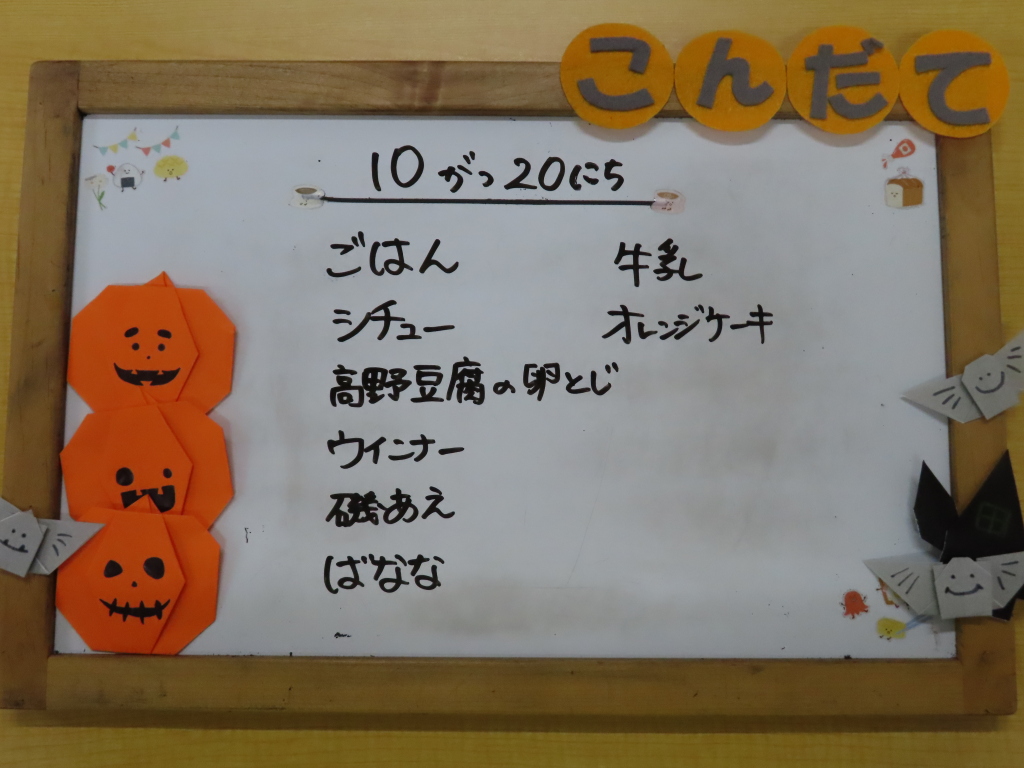 こんだて
10がつ20にち
ごはん
シチュー
高野豆腐の卵とじ
ウインナー
磯あえ
ばなな
牛乳
オレンジケーキ